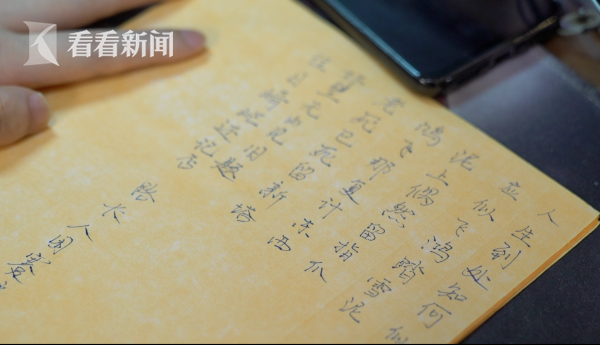 看看新闻
人生到处知何似
应似飞鸿踏雪泥
泥上偶然留指爪
鸿飞那复计东西
老已死留新塔
坏壁无由见旧题
往日崎岖还记否
路长人困蹇